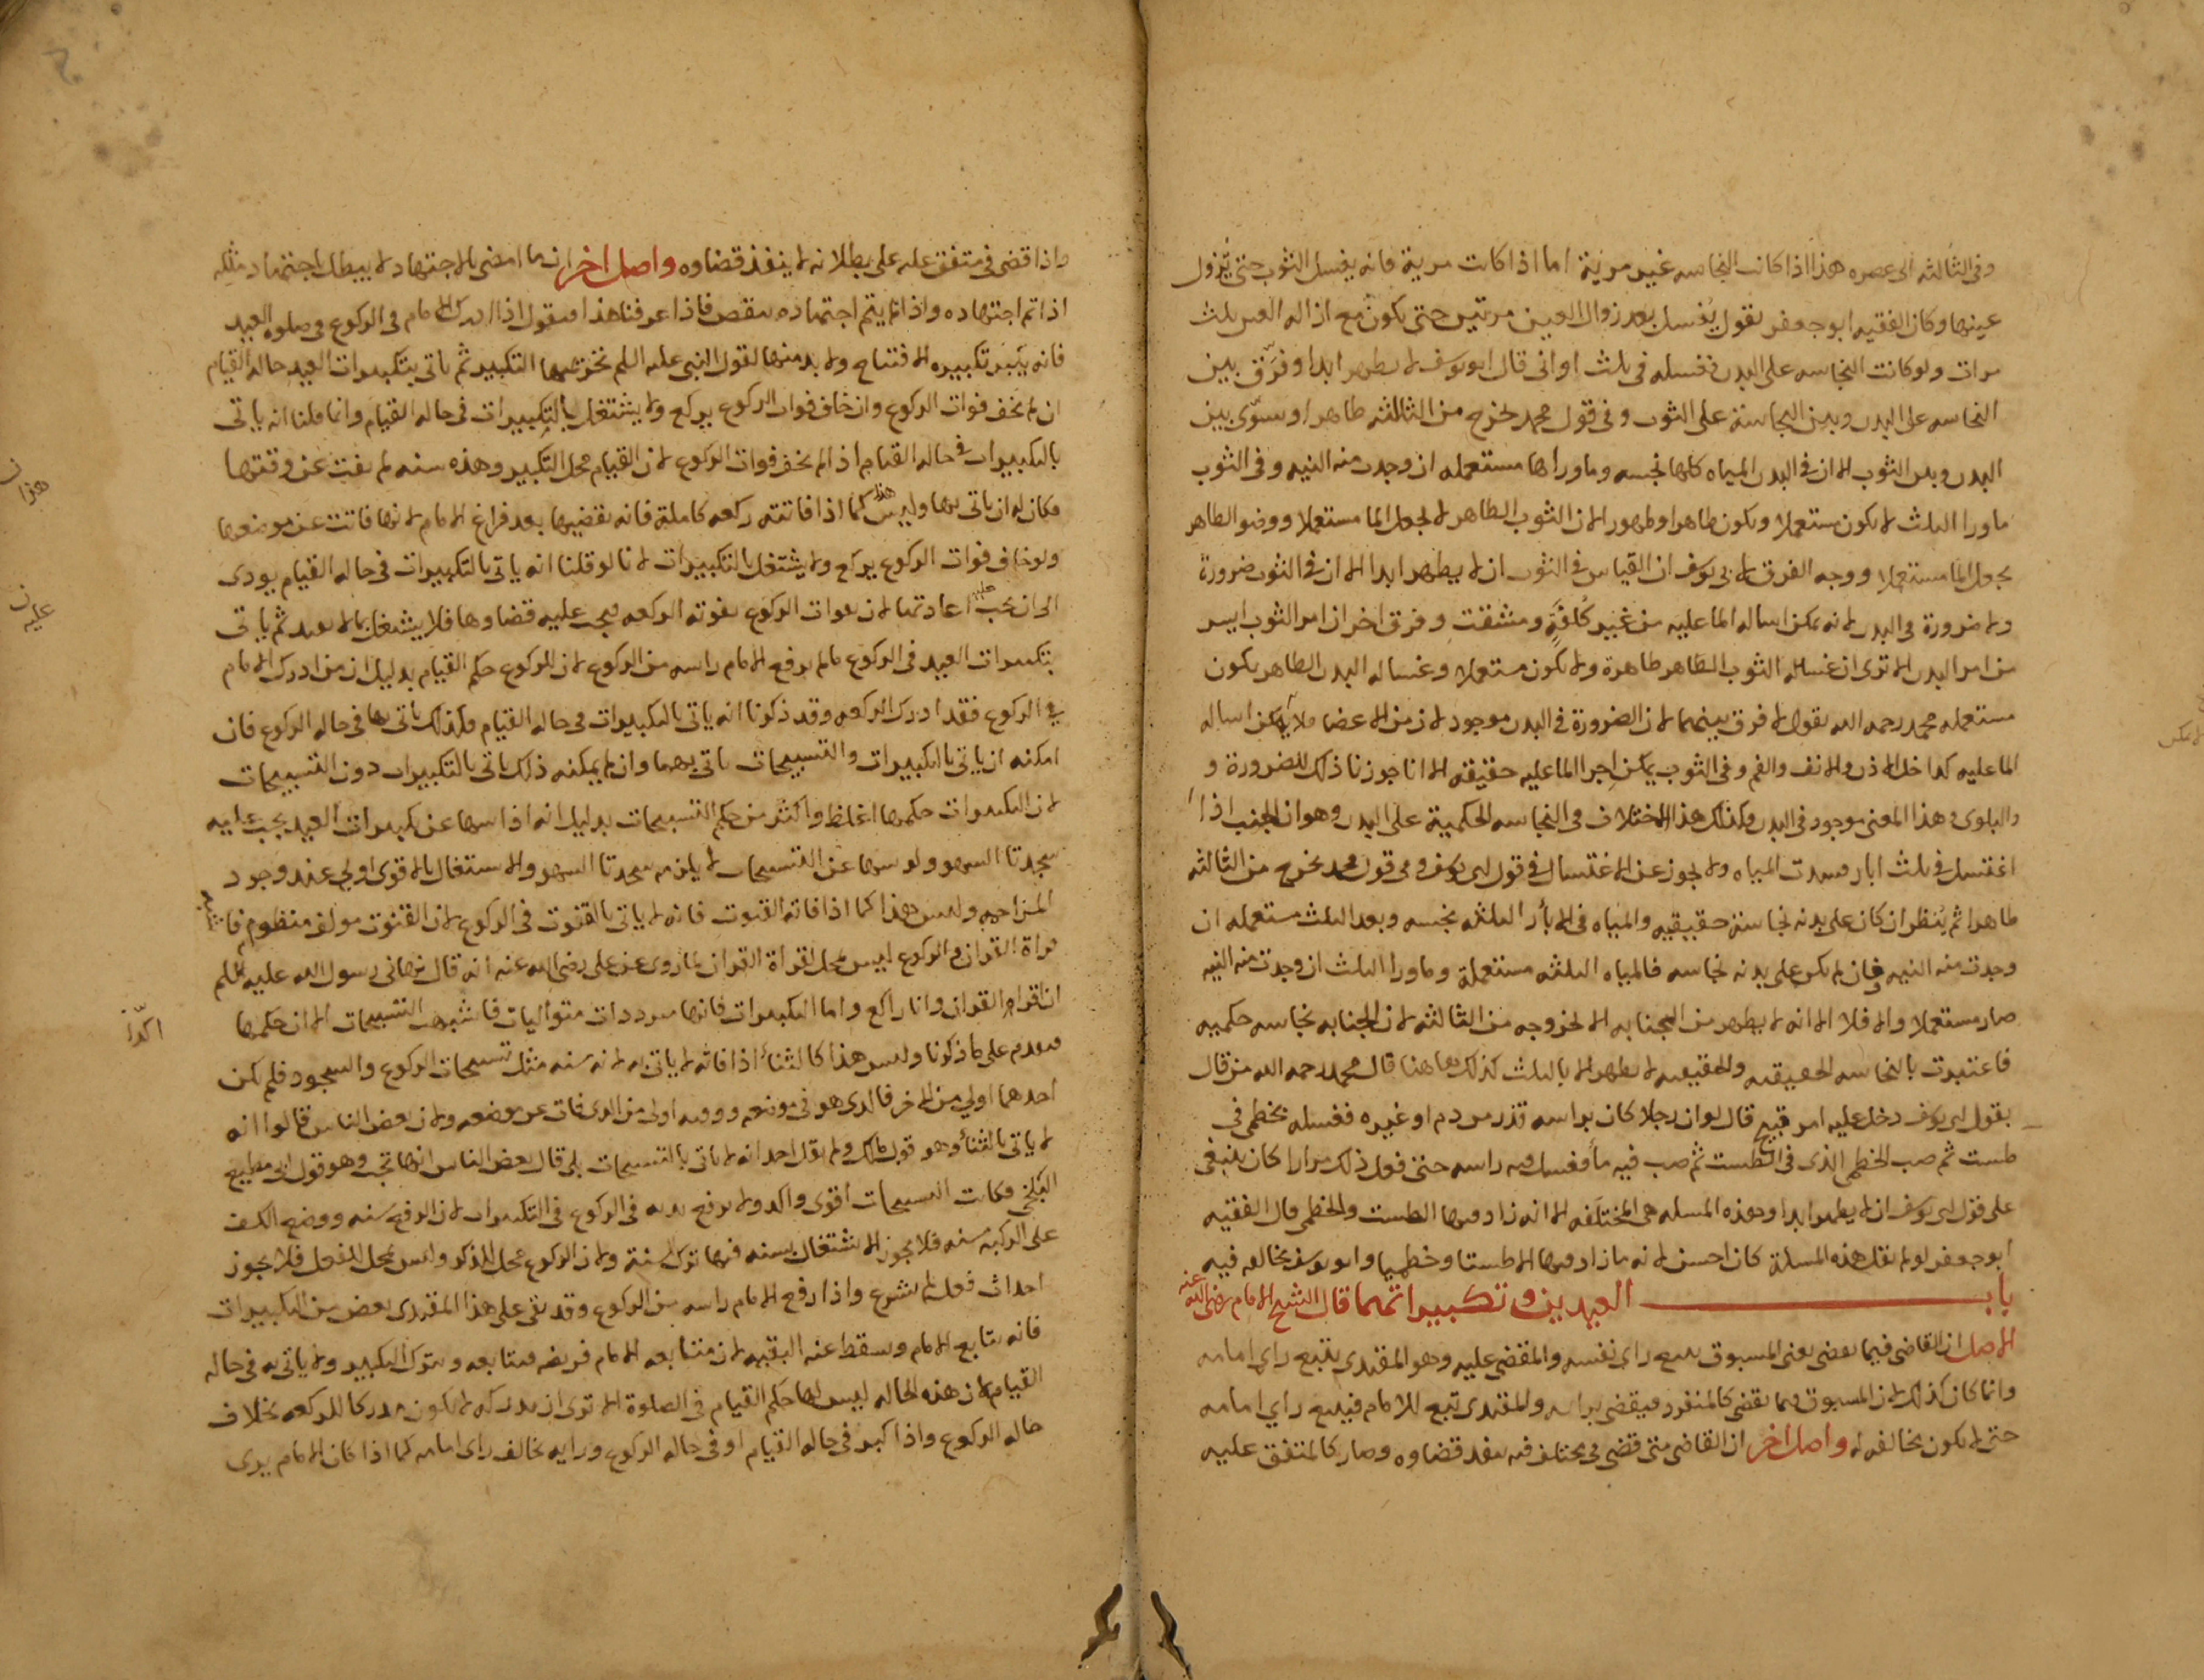 وفى الثالثه الى عصره هذا اذا كانت النجاسه غير مرئية اما اذا كانت مرية فانه يغسل الثوب حتى يزول
عينها وكان الفقيه ابو جعفر يقول يُغسل بعد زوال العين مرتين حتى يكون مع ازاله العين ثلث
مرات ولو كانت النجاسه على البدن فغسله فى ثلث اوانى قال ابو يوسف لا يطهر ابدا وفرّق بين
النجاسه على البدن وبين النجاسة على الثوب وفى قول محمد يخرج من الثالثه طاهرا وسوّى بين
البدن وبين الثوب الا ان فى البدن المياه كلها نجسه وما وراها مستعمله ان وجدت منه النيه وفى الثوب
ما ورا الثلث لا يكون مستعملا ويكون طاهرا وطهورا لان الثوب الطاهر لا يجعل الما مستعملا ووضو الطاهر
يجعل الما مستعملا ووجه الفرق لابى يوسف ان القياس فى الثوب ان لا يطهر ابدا الا ان فى الثوب ضرورة
ولا ضرورة فى البدن لانه يمكن اساله الما عليه من غير كُلفةٍ ومشقت وفرق اخر ان امر الثوب ايسر
من امر البدن الا ترى ان غساله الثوب الطاهر طاهرة ولا يكون مستعملا وغساله البدن الطاهر يكون
مستعمله محمد رحمه الله يقول لا فرق بينهما لان الضرورة فى البدن موجود لان من الاعضا ما لا يمكن اساله
الما عليه كداخل الاذن والانف والفم وفى الثوب يمكن اجرا الما عليه حقيقه الا انا جوزنا ذلك للضرورة و
والبلوى وهذا المعنى موجود فى البدن وكذلك هذا الاختلاف فى النجاسه الحكمية على البدن وهو ان الجنب اذا
اغتسل فى ثلث ابار فسدت المياه ولا يجوز عن الاغتسال فى قول ابى يوسف وفى قول محمد يخرج من الثالثه
طاهرا ثم يُنظر ان كان على بدنه نجاسة حقيقيه والمياه فى الابأر الثلثه نجسه وبعد الثلث مستعمله ان
وجدت منه النيه وان لم يكن على بدنه نجاسه فالمياه الثلثه مستعملة وما ورا الثلث ان وجدت منه النيه
صار مستعملا والا فلا الا انه لا يطهر من الجنابه الا لخروجه من الثالثه لان الجنابه نجاسه حكميه
فاعتبرت بالنجاسه الحقيقيه والحقيقيه لا يطهر الا بالثلث كذلك هاهنا قال محمد رحمه الله من قال
بقول ابى يوسف دخل عليه امر قبيح قال لو ان رجلا كان براسه قذر من دم او غيره فغسله بخطمى فى
طست ثم صب الخطمى الذى فى الطست ثم صب فيه مأً فغسل فيه راسه حتى فعل ذلك مرارا كان ينبغى
على قول ابى يوسف ان لا يطهر ابدا وهذه المسله هى المختلفه الا انه زاد فيها الطست والخطمى قال الفقيه
ابو جعفر لو لم يقل هذه المسلة كان احسن لانه ما زاد فيها الا طستا وخطميا وابو يوسف يخالفه فيه
باب العيدين وتكبيراتهما قال الشيخ الامام رضى الله عنه
الاصل ان القاضى فيما يقضى يعنى المسبوق يتبع راى نفسه والمقضى عليه وهو المقتدى يتبع راى امامه
وانما كان كذلك لان المسبوق فيما يقضى كالمنفرد فيقضى براىه والمقتدى تبع للامام فيتبع راي امامه
حتى لا يكون مخالفه له واصل اخر ان القاضى متى قضى فى مختلف فيه نفد قضاوه وصار كالمتفق عليه
لا يمكن
واذا قضى فى متفق عليه على بطلانه لا ينفذ قضاوه واصل اخر ان ما امضى بالاجتهاد لا يبطل باجتهاد مثله
اذا تم اجتهاده واذا لم يتم اجتهاده ينقص فاذا عرفنا هذا فنقول اذا ادرك الامام فى الركوع فى صلوه العيد
فانه يكبر تكبيره الافتتاح ولا بد منها لقول النبى عليه السلم تحريمها التكبير ثم ياتى بتكبيرات العيد حاله القيام
ان لم يخف فوات الركوع وان خاف فوات الركوع يركع ولا يشتغل بالتكبيرات فى حاله القيام وانما قلنا انه ياتى
بالتكبيرات فى حاله القيام اذا لم يخف فوات الركوع لان القيام محل التكبير وهذه سنه لم يفت عن وقتها
فكان له ان ياتى بها وليس هذا كما اذا فاتته ركعه كاملة فانه يقضيها بعد فراغ الامام لانها فاتت عن موضعها
هذا ن
ولو خاف فوات الركوع يركع ولا يشتغل بالتكبيرات لانا لو قلنا انه ياتى بالتكبيرات فى حاله القيام يودى
الى ان يجب عليه اعادتها لان بفوات الركوع يفوته الركعه فيجب عليه قضاوها فلا يشتغل بها لا يعيد ثم ياتى
عليه ن
بتكبيرات العيد فى الركوع ما لم يرفع الامام راسه من الركوع لان للركوع حكم القيام بدليل ان من ادرك الامام
فى الركوع فقد ادرك الركعه وقد ذكرنا انه ياتى بالتكبيرات فى حاله القيام فكذلك ياتى بها فى حاله الركوع فان
امكنه ان ياتى بالتكبيرات والتسبيحات ياتى بهما وان لم يمكنه ذلك ياتى بالتكبيرات دون التسبيحات
لان التكبيرات حكمها اغلظ واكثر من حكم التسبيحات بدليل انه اذا سها عن تكبيرات العيد يجب عليه
سجدتا السهو ولو سها عن التسبيحات لا يلزمه سجدتا السهو والاستغال بالاقوى اولى عند وجود
المزاحمه وليس هذا كما اذا فاته القنوت فانه لا ياتى بالقنوت فى الركوع لان القنوت مولف منظوم فاشبه
قراة القران والركوع ليس محل لقراة القران لما روى عن على رضى الله عنه انه قال نهانى رسول الله عليه السلم
ان اقرا القران وانا راكع واما التكبيرات فانها مرددات متواليات فاشبهت التسبيحات الا ان حكمها
اكدّ ن
فيقدم على ما ذكرنا وليس هذا كالثنأ اذا فاته لا ياتى به لانه سنه مثل تسبيحات الركوع والسجود فلم يكن
احدهما اولى من الاخر فالذى هو فى موضعه ووقته اولى من الذى فات عن موضعه ولان بعض الناس قالوا انه
لا ياتى بالثنأ وهو قول مالك ولم يقل احد انه لا ياتى بالتسبيحات بلى قال بعض الناس انها تجب وهو قول ابى مطيع
البلخى فكانت التسبيحات اقوى واكد ولا يرفع يديه فى الركوع فى التكبيرات لان الرفع سنه ووضع الكف
على الركبه سنه فلا يجوز الاشتغال بسنه فيها ترك سنة ولان الركوع محل الذكر وليس بمحل الفعل فلا يجوز
احداث فعل لم يشرع واذا رفع الامام راسه من الركوع وقد بقى على هذا المقتدى بعض من التكبيرات
فانه يتابع الامام وسقط عنه البقيه لان متابعه الامام فريضه فيتابعه ويترك التكبير ولا ياتى به فى حاله
القيام لان هذه الحاله ليس لها حكم القيام فى الصلوة الا ترى ان مدركه لا يكون مدركا للركعه بخلاف
حاله الركوع واذا كبر فى حاله القيام او فى حاله الركوع ورايه يخالف راى امامه كما اذا كان الامام يرى